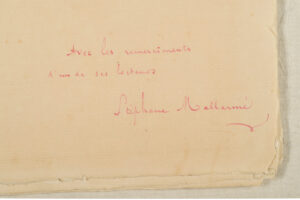 Avec les remerciments
à un de ses lecteurs
Stéphane Mallarmé